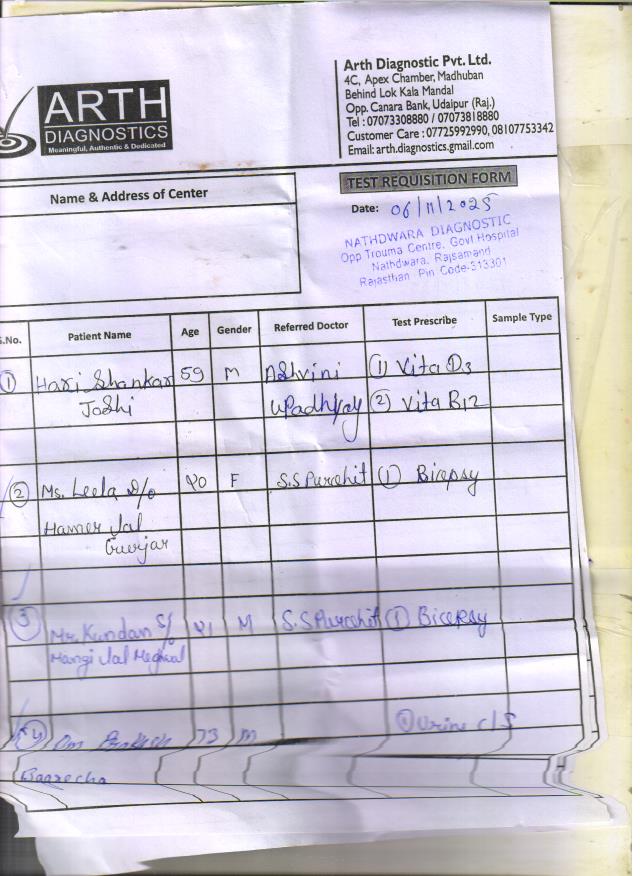 ARTH
DIAGNOSTICS
Meaningful, Authentic & Dedicated
Arth Diagnostic Pvt. Ltd.
4C, Apex Chamber, Madhuban
Behind Lok Kala Mandal
Opp. Canara Bank, Udaipur (Raj.)
Tel : 07073308880 / 07073818880
Customer Care : 07725992990, 08107753342
Email: arth.diagnostics.gmail.com
Name & Address of Center
TEST REQUISITION FORM
Date: 06/11/2025
NATHDWARA DIAGNOSTIC
Opp Trouma Centre, Govt Hospital
Nathdwara, Rajsamand
Rajasthan Pin Code-313301
S.No. Patient Name Age Gender Referred Doctor Test Prescribe Sample Type
(1) Hari Shankar 59 M AShvini (1) Vita D3
Joshi Upadhyay (2) Vita B12
(2) Ms. Leela D/o 20 F S.S Purohit (1) Biopsy
Hamer Lal
Gurjar
(3) Mr. Kundan S/o 21 M S.S Purohit (1) Biopsy
Mangi Lal Meghwal
(4) Om Prakash 73 M (1) Urine C/S
Baarecha